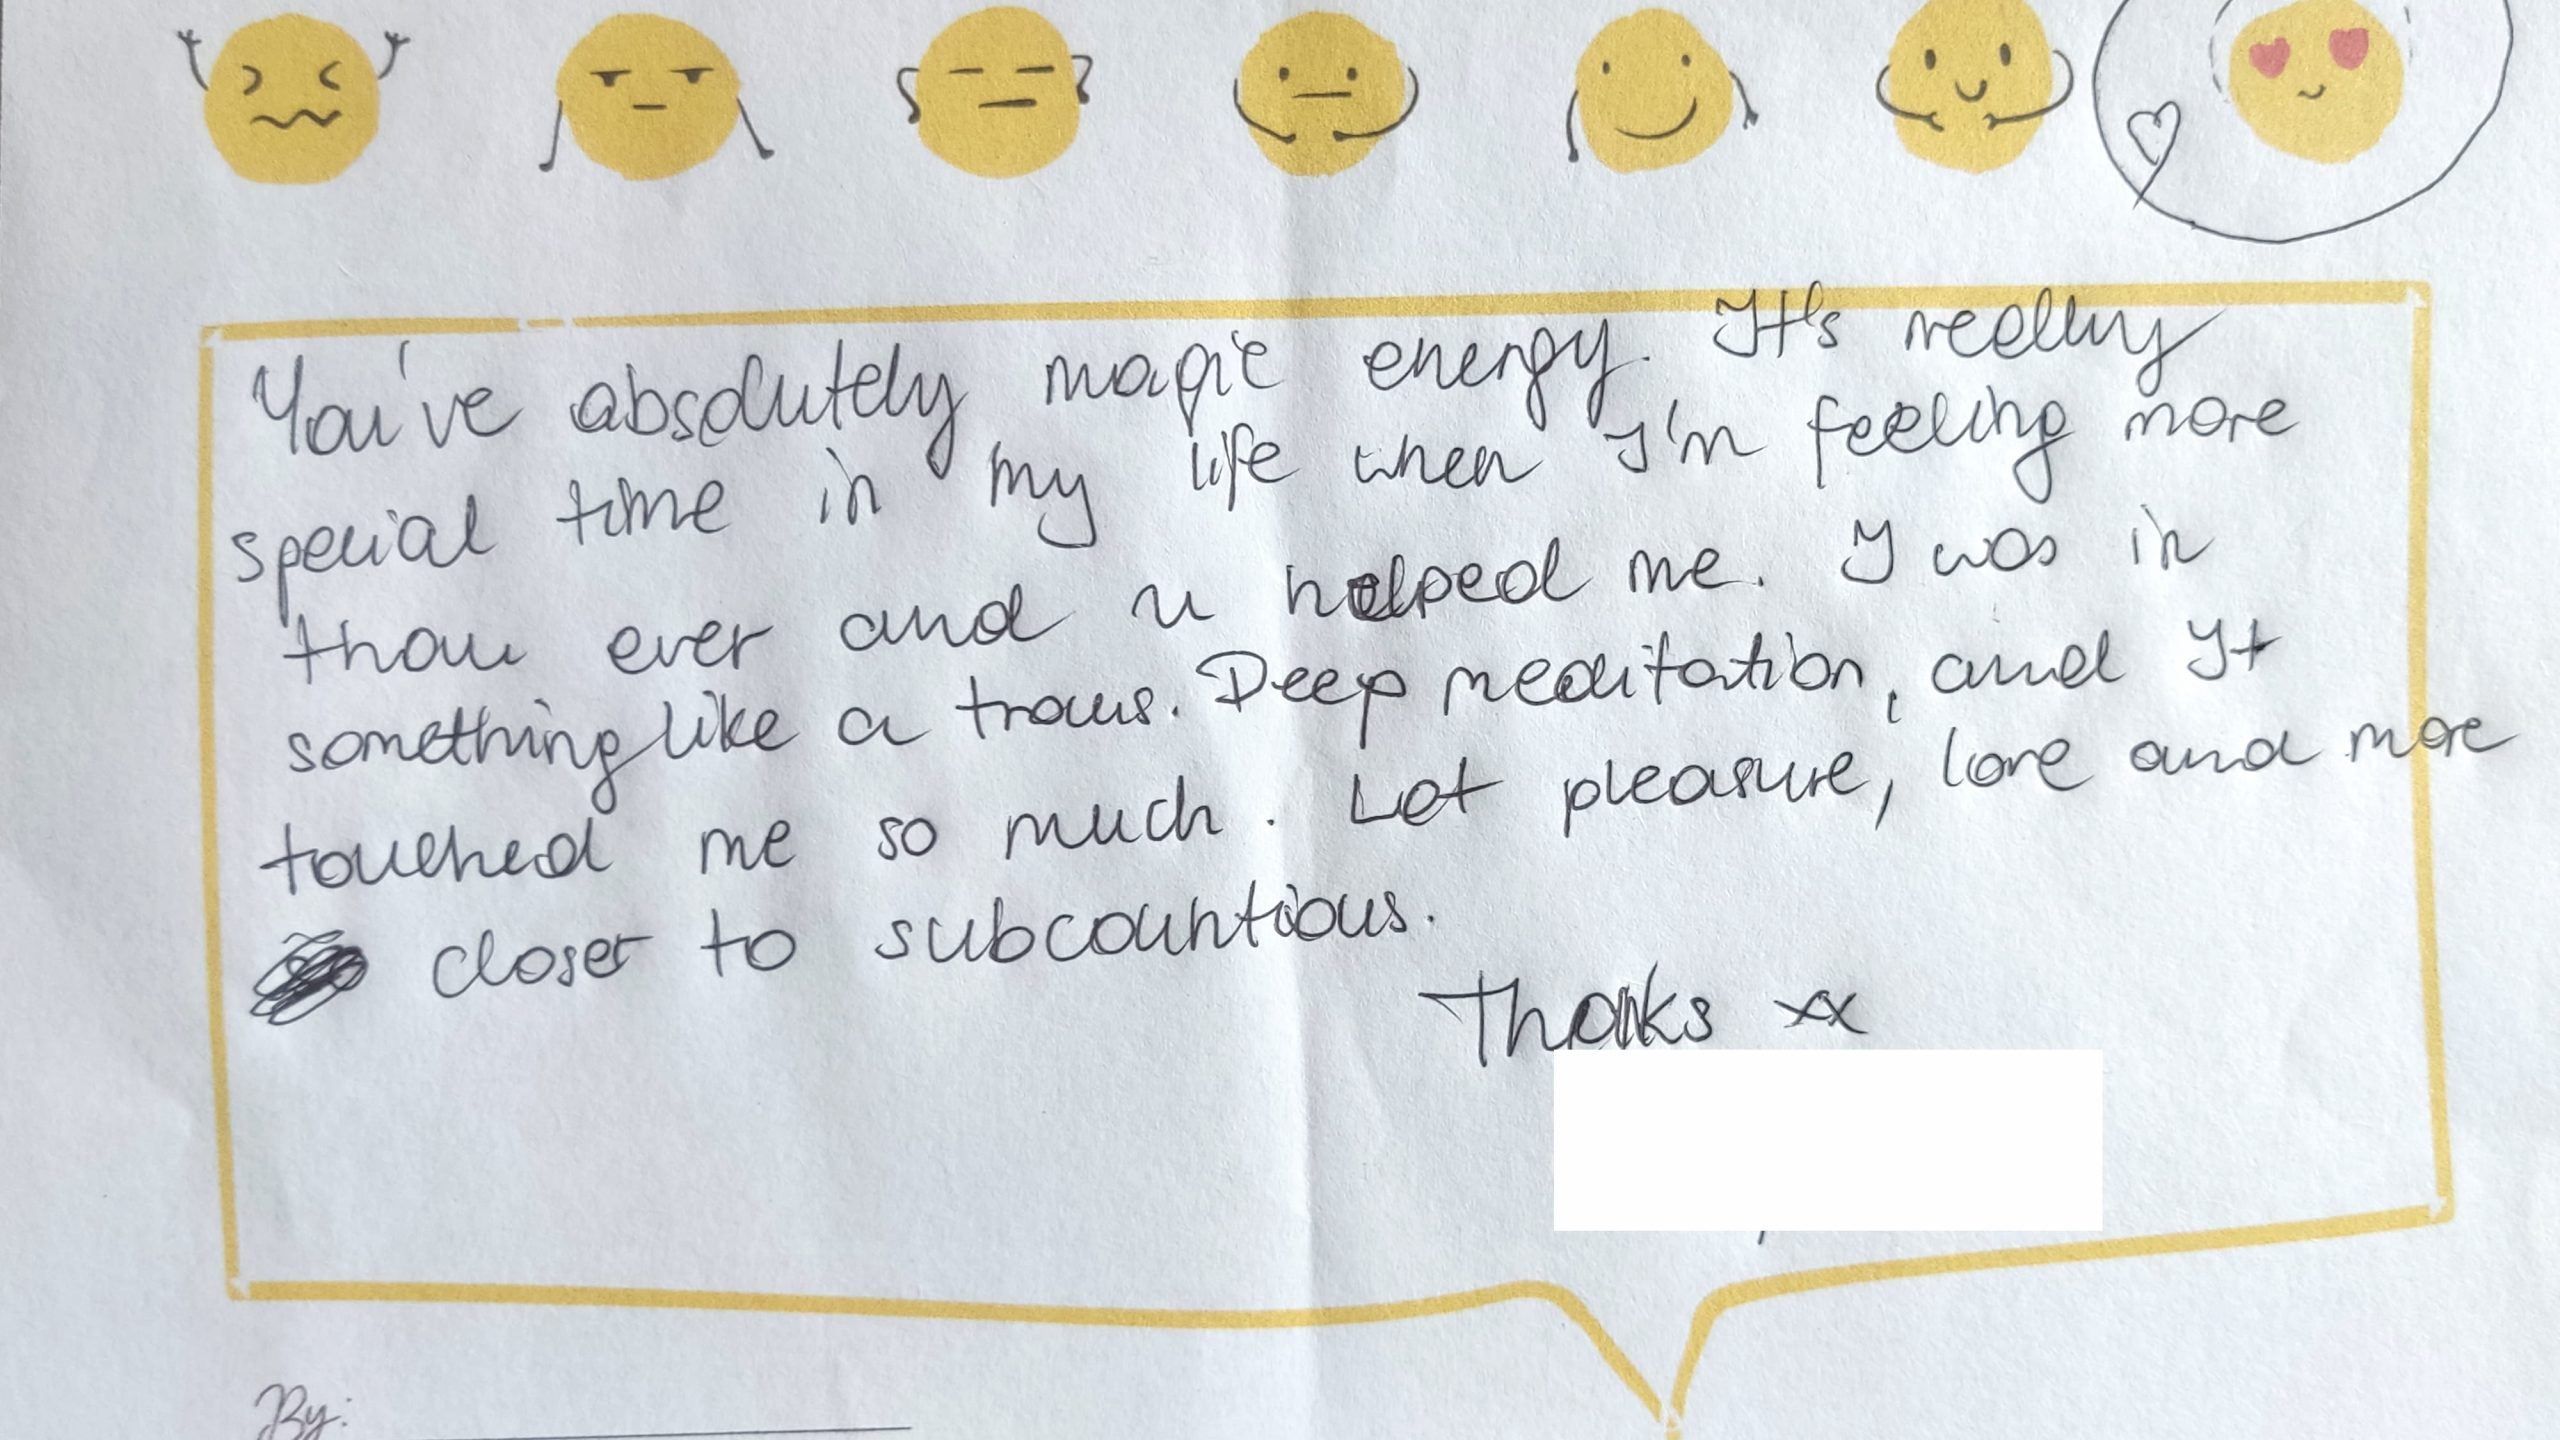 You've absolutely magic energy. It's really
special time in my life when I'm feeling more
than ever and u helped me. I was in
something like a trans. Deep meditation, and It
touched me so much. Lot pleasure, love and more
closer to subcountious.
Thanks xx
By: